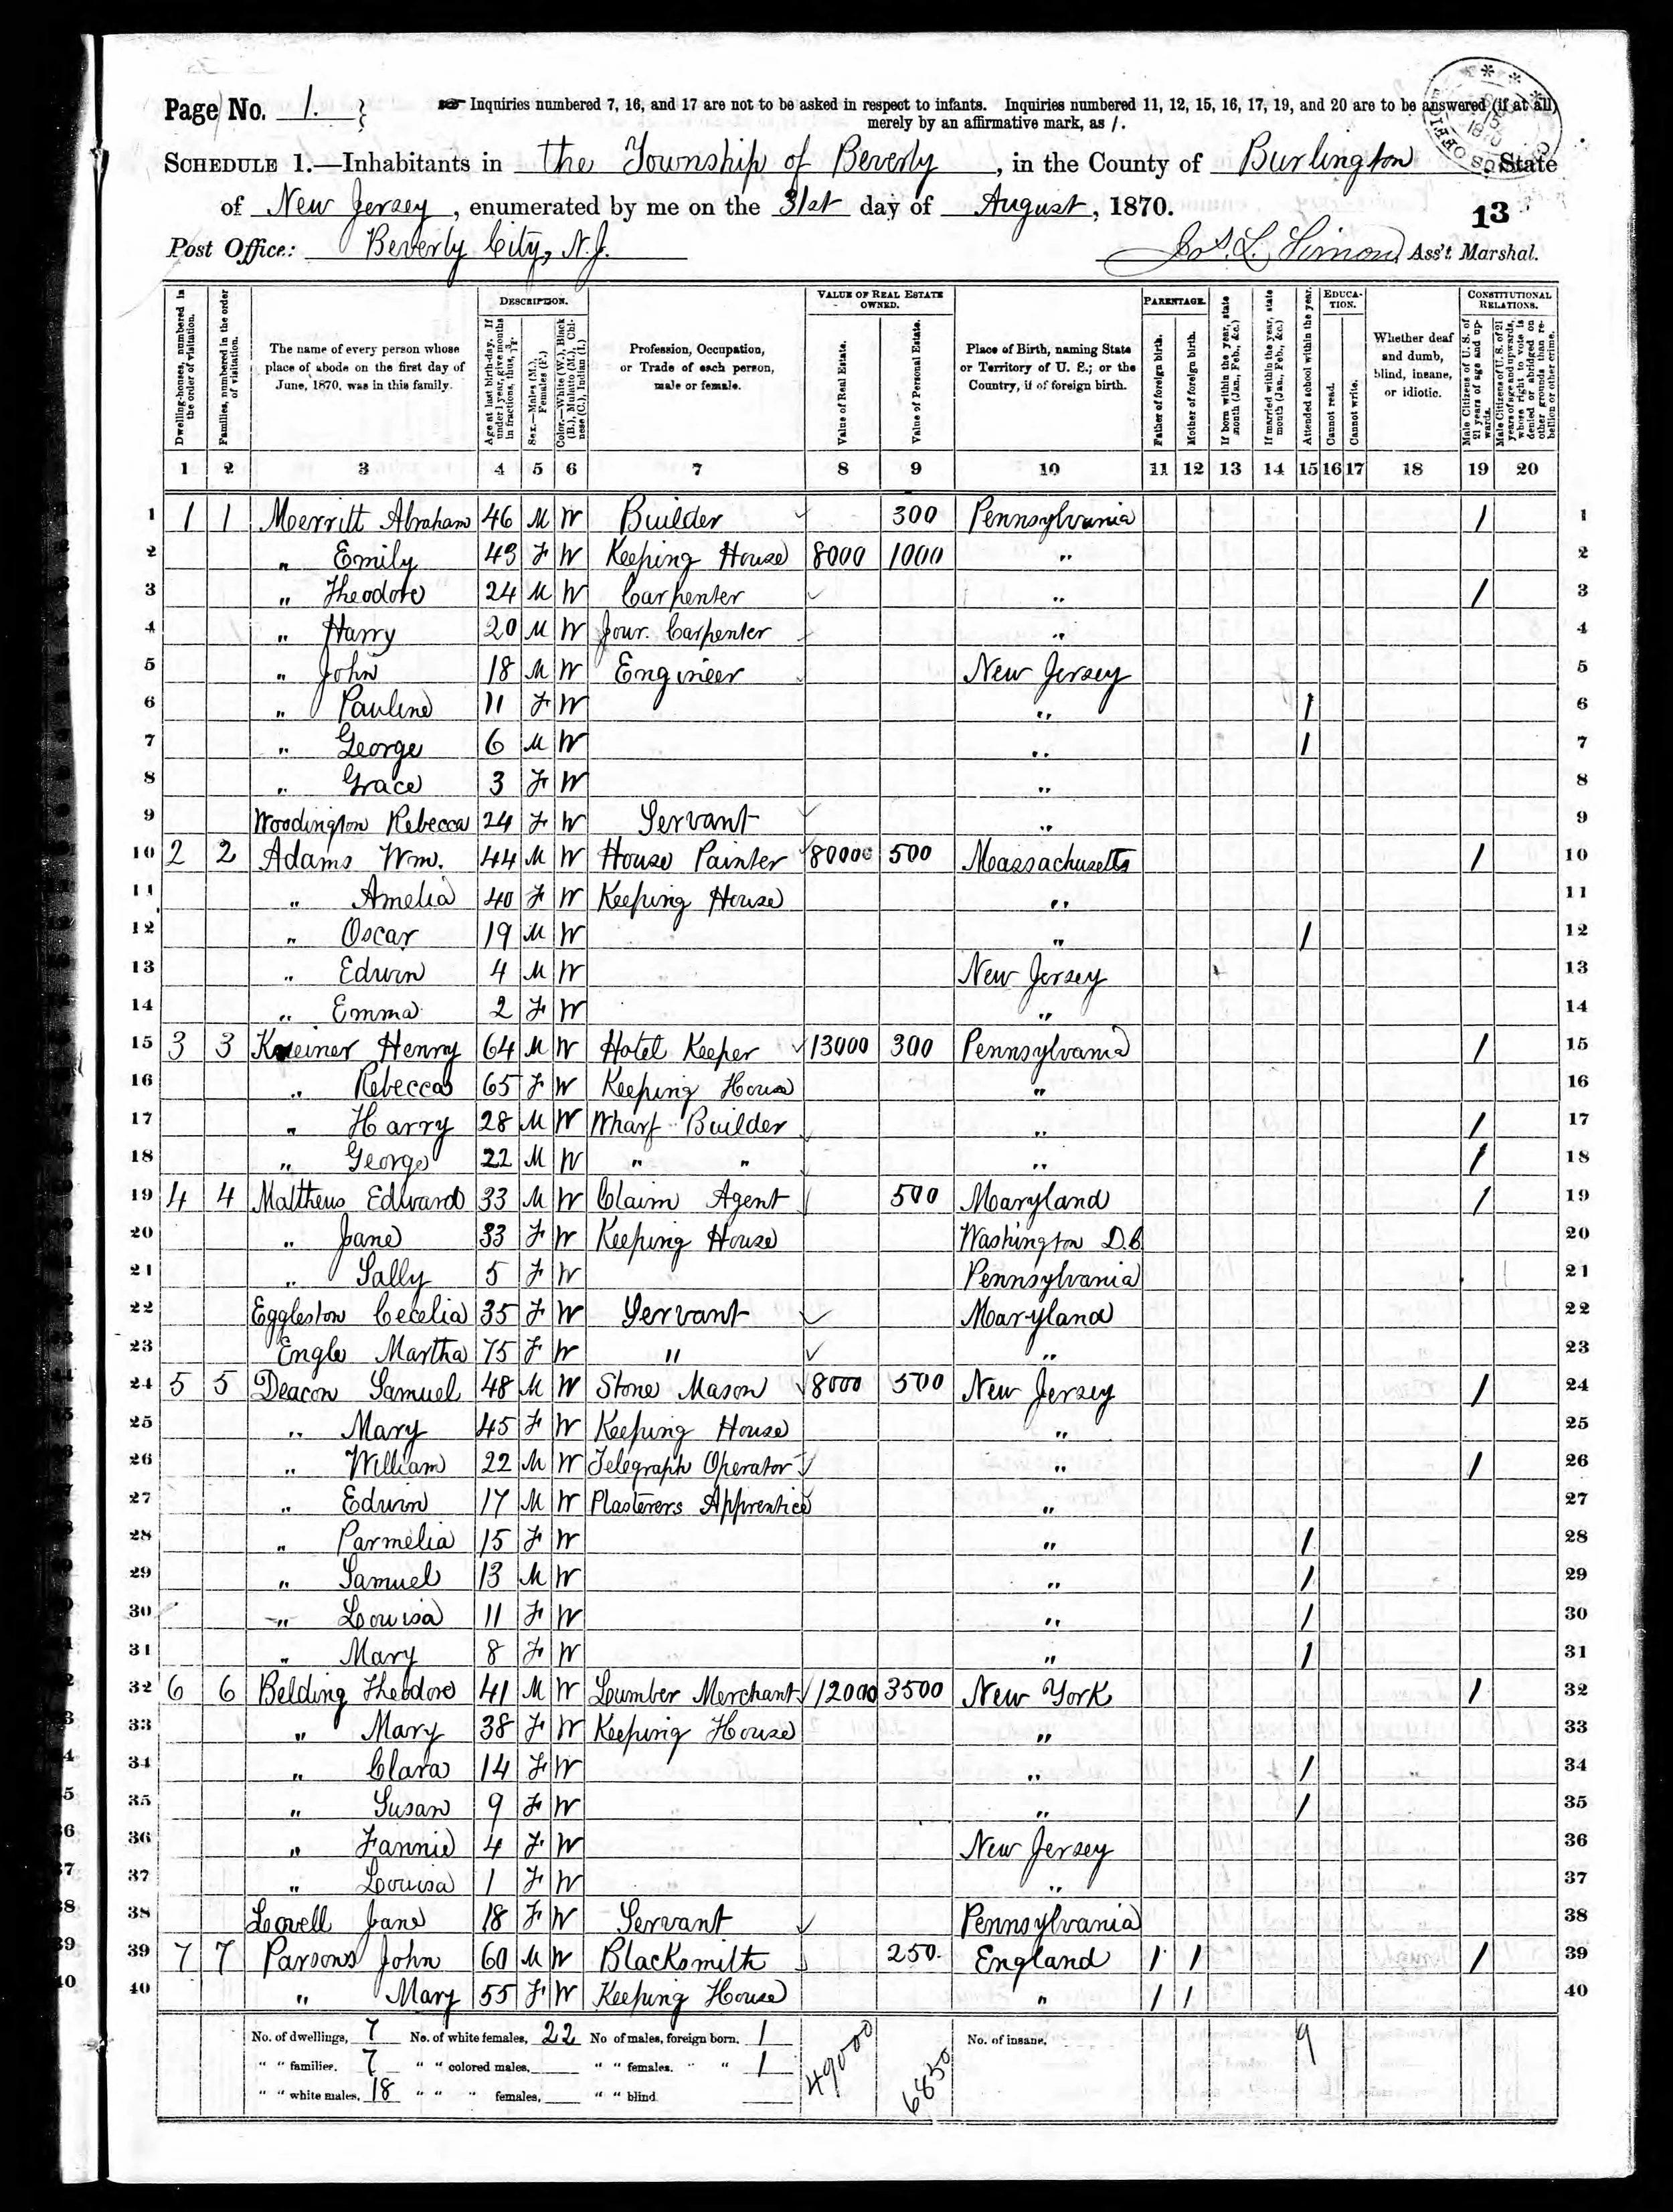 Page No. 1. } Inquiries numbered 7, 16, and 17 are not to be asked in respect to infants. Inquiries numbered 11, 12, 15, 16, 17, 19, and 20 are to be answered (if at all)
merely by an affirmative mark, as /.
SCHEDULE 1.—Inhabitants in the Township of Beverly, in the County of Burlington, State
of New Jersey, enumerated by me on the 31st day of August, 1870.
13
Post Office: Beverly City, N.J. Jos. L. Simons, Ass't Marshal.
Dwelling-houses, numbered in the order of visitation.
Families, numbered in the order of visitation.
The name of every person whose place of abode on the first day of June, 1870, was in this family.
DESCRIPTION.
Age at last birth-day. If under 1 year, give months in fractions, thus, 3/12.
Sex.—Males (M.), Females (F.)
Color.—White (W.), Black (B.), Mulatto (M.), Chinese (C.), Indian (I.)
Profession, Occupation, or Trade of each person, male or female.
VALUE OF REAL ESTATE OWNED.
Value of Real Estate.
Value of Personal Estate.
Place of Birth, naming State or Territory of U. S.; or the Country, if of foreign birth.
PARENTAGE.
Father of foreign birth.
Mother of foreign birth.
If born within the year, state month (Jan., Feb., &c.)
If married within the year, state month (Jan., Feb., &c.)
Attended school within the year.
EDUCATION.
Cannot read.
Cannot write.
Whether deaf and dumb, blind, insane, or idiotic.
CONSTITUTIONAL RELATIONS.
Male Citizens of U. S. of 21 years of age and upwards.
Male Citizens of U. S. of 21 years of age and upwards, whose right to vote is denied or abridged on other grounds than rebellion or other crime.
1 2 3 4 5 6 7 8 9 10 11 12 13 14 15 16 17 18 19 20
1 1 1 Merritt Abraham 46 M W Builder 300 Pennsylvania / 1
2 " Emily 43 F W Keeping House 8000 1000 " 2
3 " Theodore 24 M W Carpenter " / 3
4 " Harry 20 M W Jour. Carpenter " 4
5 " John 18 M W Engineer New Jersey 5
6 " Pauline 11 F W " / 6
7 " George 6 M W " / 7
8 " Grace 3 F W " 8
9 Woodington Rebecca 24 F W Servant " 9
10 2 2 Adams Wm. 44 M W House Painter 8000 500 Massachusetts / 10
11 " Amelia 40 F W Keeping House " 11
12 " Oscar 19 M W " / 12
13 " Edwin 4 M W New Jersey 13
14 " Emma 2 F W " 14
15 3 3 Kreiner Henry 64 M W Hotel Keeper 13000 300 Pennsylvania / 15
16 " Rebecca 65 F W Keeping House " 16
17 " Harry 28 M W Wharf Builder " / 17
18 " George 22 M W " " " / 18
19 4 4 Matthews Edward 33 M W Claim Agent 500 Maryland / 19
20 " Jane 33 F W Keeping House Washington D.C. 20
21 " Sally 5 F W Pennsylvania 21
22 Eggleston Cecelia 35 F W Servant Maryland 22
23 Engle Martha 75 F W " " 23
24 5 5 Deacon Samuel 48 M W Stone Mason 8000 500 New Jersey / 24
25 " Mary 45 F W Keeping House " 25
26 " William 22 M W Telegraph Operator " / 26
27 " Edwin 17 M W Plasterers Apprentice " 27
28 " Parmelia 15 F W " / 28
29 " Samuel 13 M W " / 29
30 " Louisa 11 F W " / 30
31 " Mary 8 F W " / 31
32 6 6 Belding Theodore 41 M W Lumber Merchant 12000 3500 New York / 32
33 " Mary 38 F W Keeping House " 33
34 " Clara 14 F W " / 34
35 " Susan 9 F W " / 35
36 " Fannie 4 F W New Jersey 36
37 " Louisa 1 F W " 37
38 Lovell Jane 18 F W Servant Pennsylvania 38
39 7 7 Parsons John 60 M W Blacksmith 250 England / / / 39
40 " Mary 55 F W Keeping House " / / 40
No. of dwellings, 7 No. of white females, 22 No of males, foreign born, 1 49000 6850 No. of insane, 9
" " families, 7 " " colored males, " " females, " " 1
" " white males, 18 " " " females, " " blind